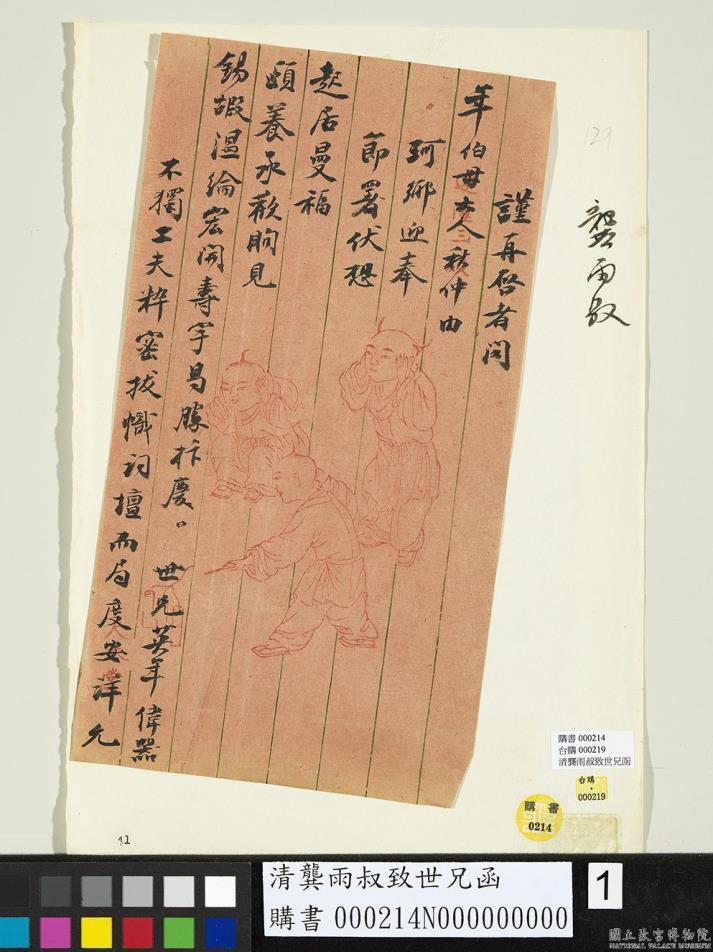 謹再啓者閏
年伯母大人秋仲由
珂鄉迎奉
節署伏想
起居曼福
頤養承歡朐見
錫嘏溫綸宏開壽宇曷勝抃慶。世兄英年偉器
不獨工夫粹密拔幟詞壇而局度安詳允
龔雨叔
129
41
購書 000214
台購 000219
清龔雨叔致世兄函
台購
000219
購書
0214
清龔雨叔致世兄函
購書 000214N000000000
1
國立故宮博物院
NATIONAL PALACE MUSEUM